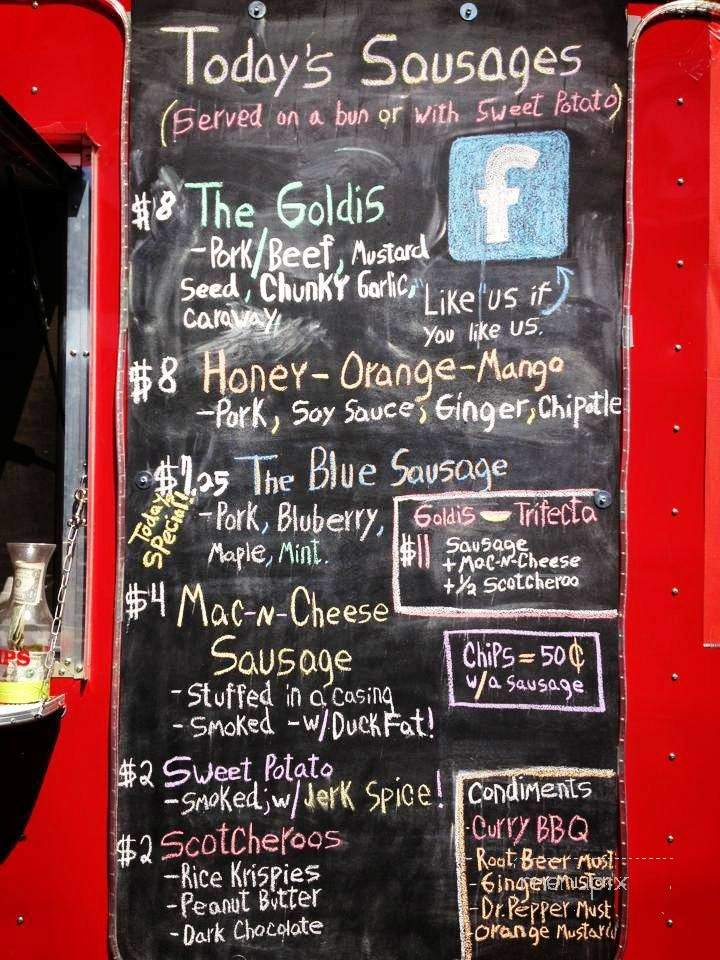 Today's Sausages
(Served on a bun or with Sweet Potato)
f
Like us if
you like us.
$8 The Goldis
-Pork/Beef, Mustard
Seed, Chunky Garlic,
Caraway
$8 Honey-Orange-Mango
-Pork, Soy Sauce, Ginger, Chipotle
$7.25 The Blue Sausage
Today's
Special!
-Pork, Bluberry,
Maple, Mint.
Goldis Trifecta
$11 Sausage
+Mac-N-Cheese
+1/2 Scotcheroo
$4 Mac-N-Cheese
Sausage
-Stuffed in a casing
-Smoked -w/Duck Fat!
Chips = 50¢
w/a sausage
$2 Sweet Potato
-Smoked; w/Jerk Spice!
$2 Scotcheroos
-Rice Krispies
-Peanut Butter
-Dark Chocolate
Condiments
-Curry BBQ
-Root Beer Must
-Ginger Mustard
-Dr. Pepper Must
-Orange Mustard
IPS